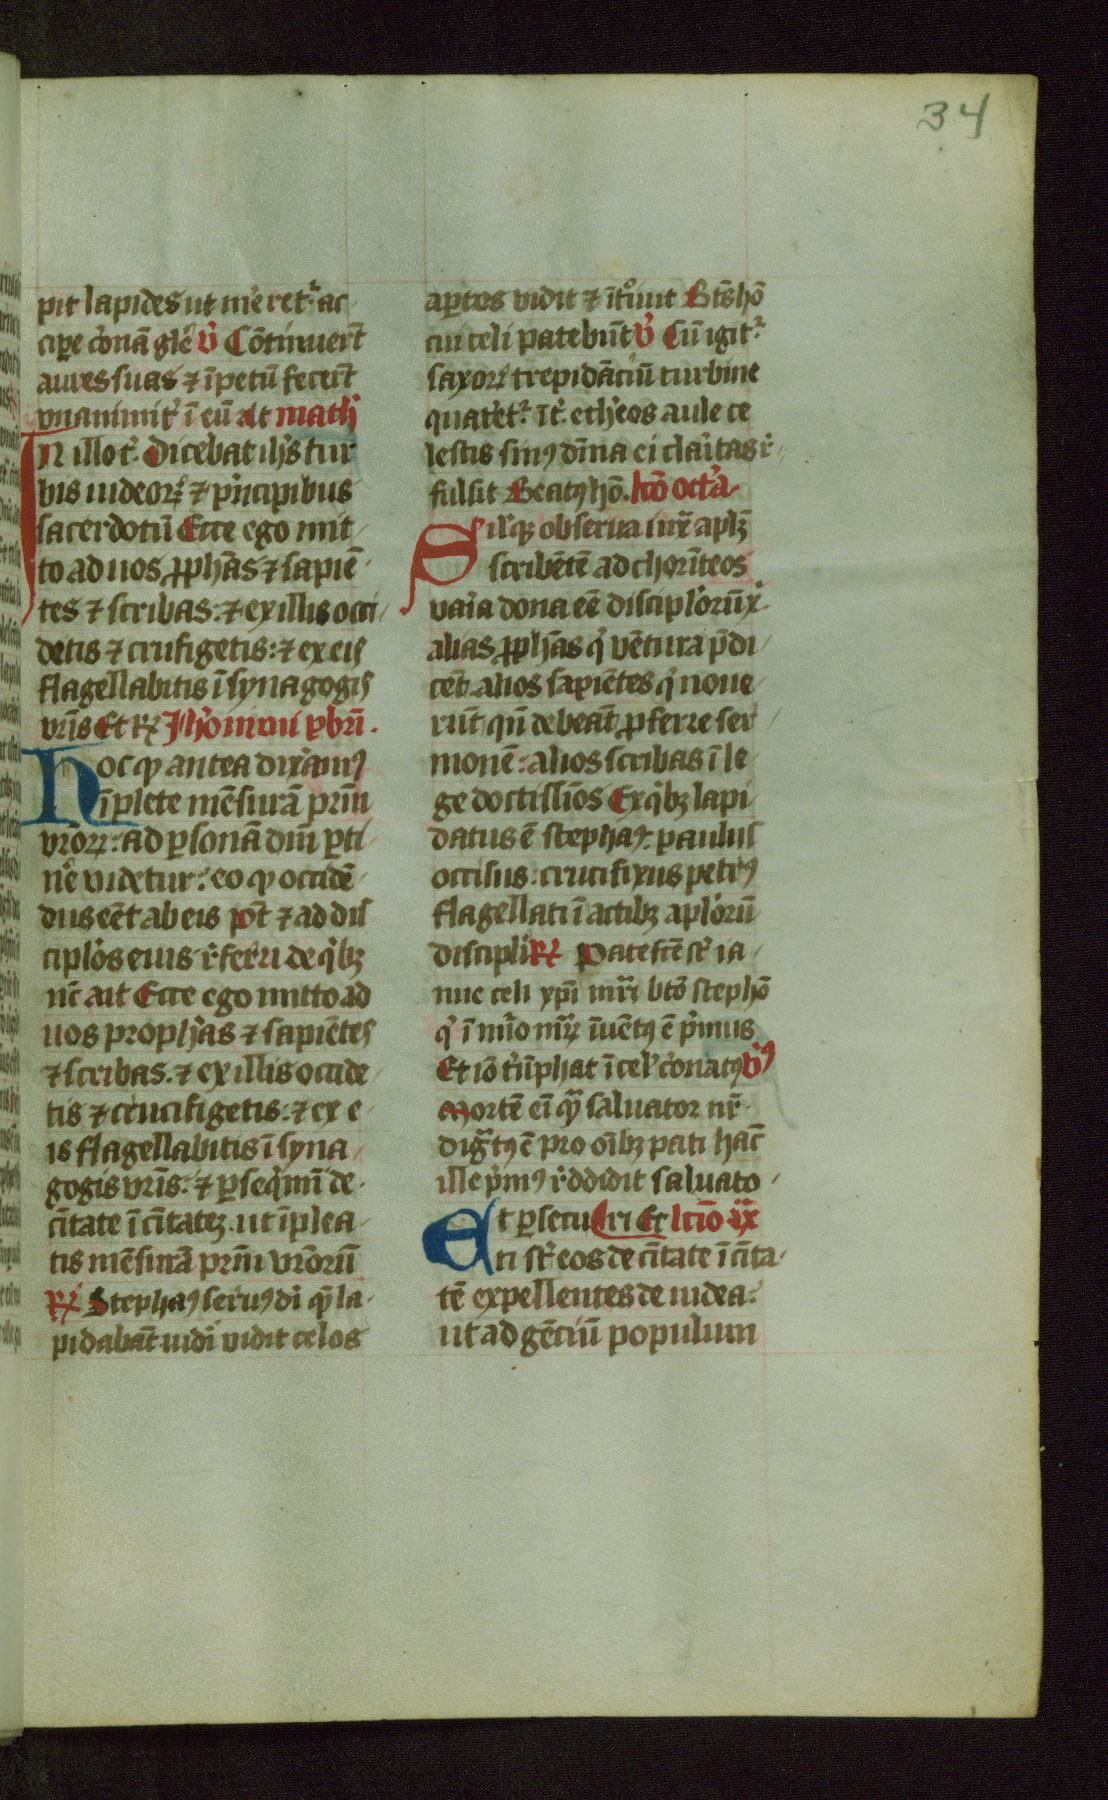 34
pit lapides ut me᷑ret᷑ ac
cipe͛ co͛nā glē ℣ Cōtinuer͛t
aures suas ⁊ īpetū fecer͛t
vnanimit᷑ ī eū at math᷑
In illo t᷑. Dicebat ih̄s tur
bis iudeoꝝ ⁊ pⁱncipibus
sacerdotū Ecce ego mit
to ad uos ꝓph̄as ⁊ sapiē
tes ⁊ scribas: ⁊ ex illis occi
detis ⁊ crufigetis: ⁊ ex eis
flagellabitis ī synagogis
vr̄is Et R᷑ Jh̓onimi p̄brī.
Hoc ꝙ antea dix̓amꝰ
īplete mēsurā pr̄m
vr̄oꝝ: ad ꝑsonā dn̄i ꝑti
ne᷑ videtur: eo ꝙ occidē
dus eēt ab eis pōt ⁊ ad dis
ciplo᷑s eius r᷑ferri de qⁱbꝫ
nc̄ ait Ecce ego mitto ad
uos proph᷑as ⁊ sapiētes
⁊ scribas. ⁊ ex illis occide
tis ⁊ crucifigetis: ⁊ ex e
is flagellabitis ī syna
gogis vr̄is: ⁊ ꝑseqⁱmī de
cītate ī cītatez. ut īplea
tis mēsurā pr̄m vr̄orū
R᷑ Stephaꝰ seruꝰ di᷑ qᷓ la
pidabāt iudi᷑ vidit celos
aꝑtos vidit ⁊ ītⁱuit Bt̄s hō
cui celi patebūt ℣ Cū igit᷑
saxoꝝ trepidāciū turbine
quate᷑t᷑ īt᷑ eth᷑eos aule ce
lestis sinꝰ dīna ei clai᷑tas r᷑
fulsit Beatꝰ hō. lcō octa᷑
Silqꝫ obserua iux᷑ aplꝫ
scribētē ad chorīteos
vai᷑a dona eē disciplo᷑rū xi᷑
alias ꝓph̄as qⁱ vētura p̄di
cēt. alios sapiētes qⁱ noue
rūt qn̄ debeāt ꝓferre ser
monē: alios scribas ī le
ge doctissīos Ex qⁱbꝫ lapi
datus ē stephaꝰ: paulus
occisus: crucifixus petrꝰ
flagellati ī actibꝫ aplo᷑rū
discipli R᷑ Patefcē st᷑ ia
nue celi xp̄i mr̄i btō stephō
qⁱ ī nu᷑o mr̄ꝝ īuētꝰ ē pⁱmus
Et iō tⁱūphat ī cel᷑ co᷑natꝰ ℣ꝰ
Mortē eī qᷓ saluator nr̄
digᷓtꝰ ē pro oībꝫ pati hāc
ille pⁱmꝰ r᷑ddidit saluato
Et ꝑsecu ri Et lciō ix
ti st᷑ eos de cītate ī cīta
tē expellentes de iudea:
ut ad gēciū populum